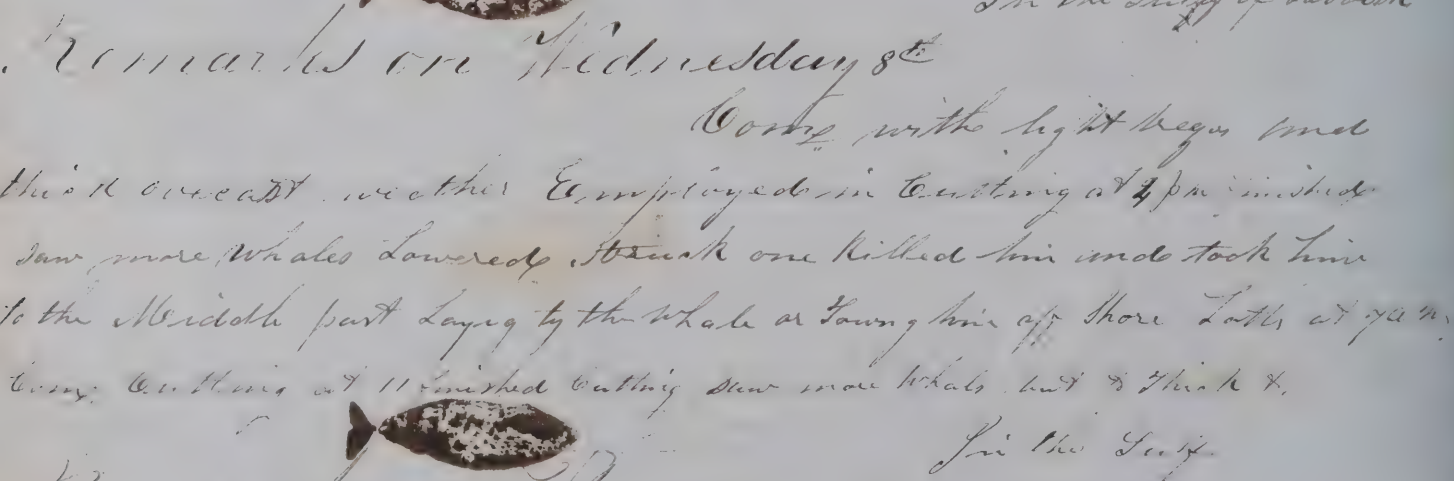 In the
Remarks on Wednesday 8th
Coms with light and
thick overcast weather Employed in Cutting at pm finished
saw more Whales Lowered Struck one Killed him and took him
to the Middle part Layig by the Whale or Towing him off Shore Latter at
Coms Cutting at 11 finished Cutting saw more Whals but to Thick &.
In the